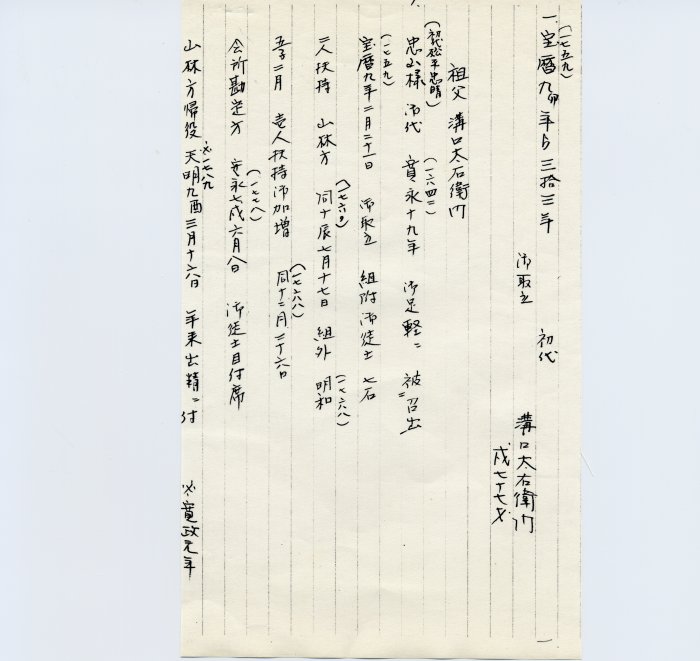 (一七五九)
一、宝暦九卯年ゟ三拾三年
御取立 初代
溝口太右衛門
戌七十七才
祖父 溝口太右衛門
(初代松平忠晴) (一六四二)
忠山様 御代 寛永十九年 御足軽ニ 被召出
(一七五九)
宝暦九年二月二十一日 御取立 組附御徒士 七石
(一七六〇)
二人扶持 山林方 同十辰七月十七日 組外 明和
(一七六八)
五子二月 壱人扶持御加増 同十二月二十六日
(一七六八)
(一七七八)
会所勘定方 安永七戌六月八日 御徒士目付席
※一七八九
山林方帰役 天明九酉三月十六日 年来出精ニ付
※寛政元年
一